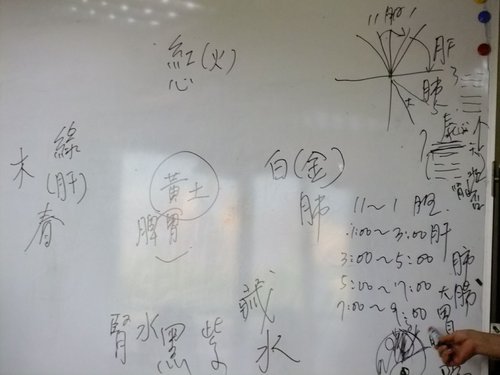 紅(火)
心
11 胆 1
肝
3
肺
5
木
綠
(肝)
春
黃土
脾胃
白(金)
肺
11~1 胆
1:00~3:00肝
3:00~5:00 肺
5:00~7:00 大腸
7:00~9:00 胃
腎水黑紫
鹹水